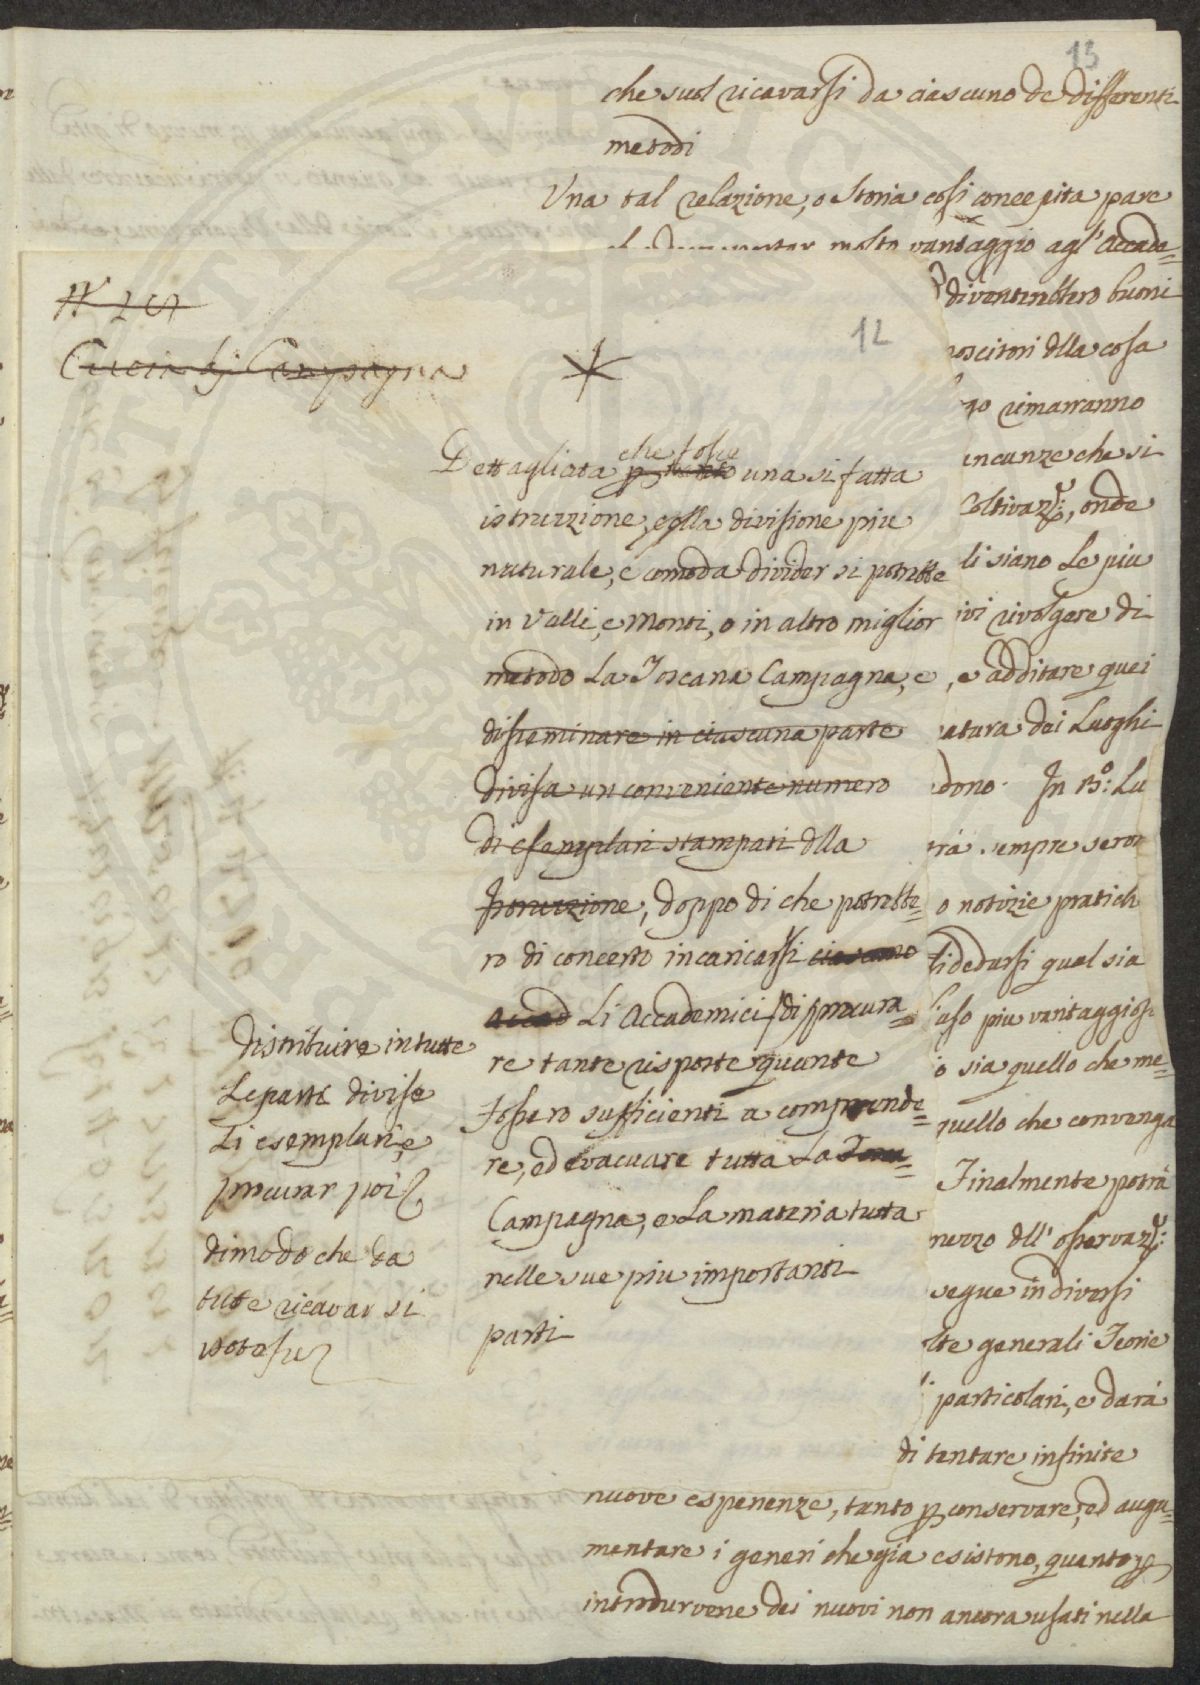 13
che suol ricavarsi da ciascuno de differenti
metodi
Una tal relazione, o Storia cosi concepita pare
molto vantaggio agl' Accade=
diventerebbero buoni
noscitori della cosa
rimarranno
che si
Coltivaz:, onde
li siano Le piu
ivi rivolgere di
, e additare quei
natura dei Luoghi
dono. In
sempre
o notizie pratich
dedursi qual sia
uso piu vantaggios
o sia quello che me=
quello che convenga
Finalmente potrà
mezzo dell' osservaz:
segue in diversi
lte generali Teorie
particolari, e darà
di tentare infinite
nuove esperienze, tanto p conservare, ed augu=
mentare i generi che gia esistono, quanto p
introdurvene dei nuovi non ancora usati nella
12
Campagna
Dettagliata che fosse una si fatta
istruzzione, colla divisione piu
naturale, e comoda divider si potrebbe
in Valli, e Monti, o in altro miglior
metodo La Toscana Campagna, e
disseminare in ciascuna parte
divisa un conveniente numero
di esemplari stampati della
Istruzzione, doppo di che potrebbe=
ro di concerto incaricarsi ciascuno
Accad Li Accademici di procura=
re tante risposte quante
fossero sufficienti a comprende=
re, ed evacuare tutta La
Campagna, e La materia tutta
nelle sue piu importanti
parti
distribuire in tutte
Le parti divise
Li esemplari, e
procurar poi
dimodo che da
tutte ricavar si
potesse